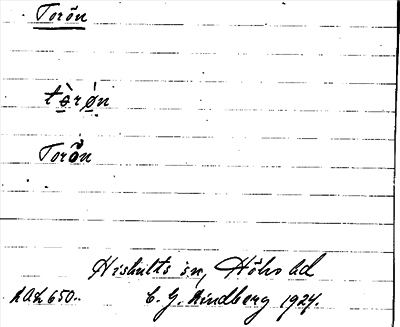 Torön
tòrøn
Torön
Hishults sn, Höks hd
AAL 650. C. G. Lindberg 1924.